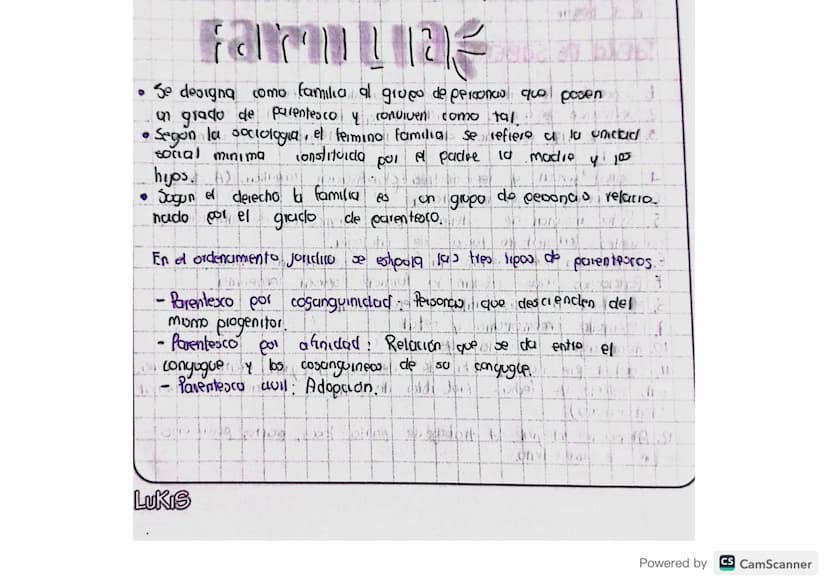 Familia
• Se designa como familia al grupo de personas que poseen
un grado de parentesco y conviven como tal.
• Según la sociologia, el termino familia se refiere a la unidad
social minima constituida por el padre la madre y los
hijos.
• Segun el derecho la familia es un grupo de personas relacio-
nado por el grado de parentesco.
En el ordenamiento juridico se estipula los tres tipos de parentescos.
- Parentesco por cosanguinidad: Personas que descienden del
mismo progenitor.
- Parentesco por afinidad: Relación que se da entre el
conyugue y los cosanguineos de su conyugue.
- Parentesco civil: Adopción.
LUKIS
Powered by CS CamScanner